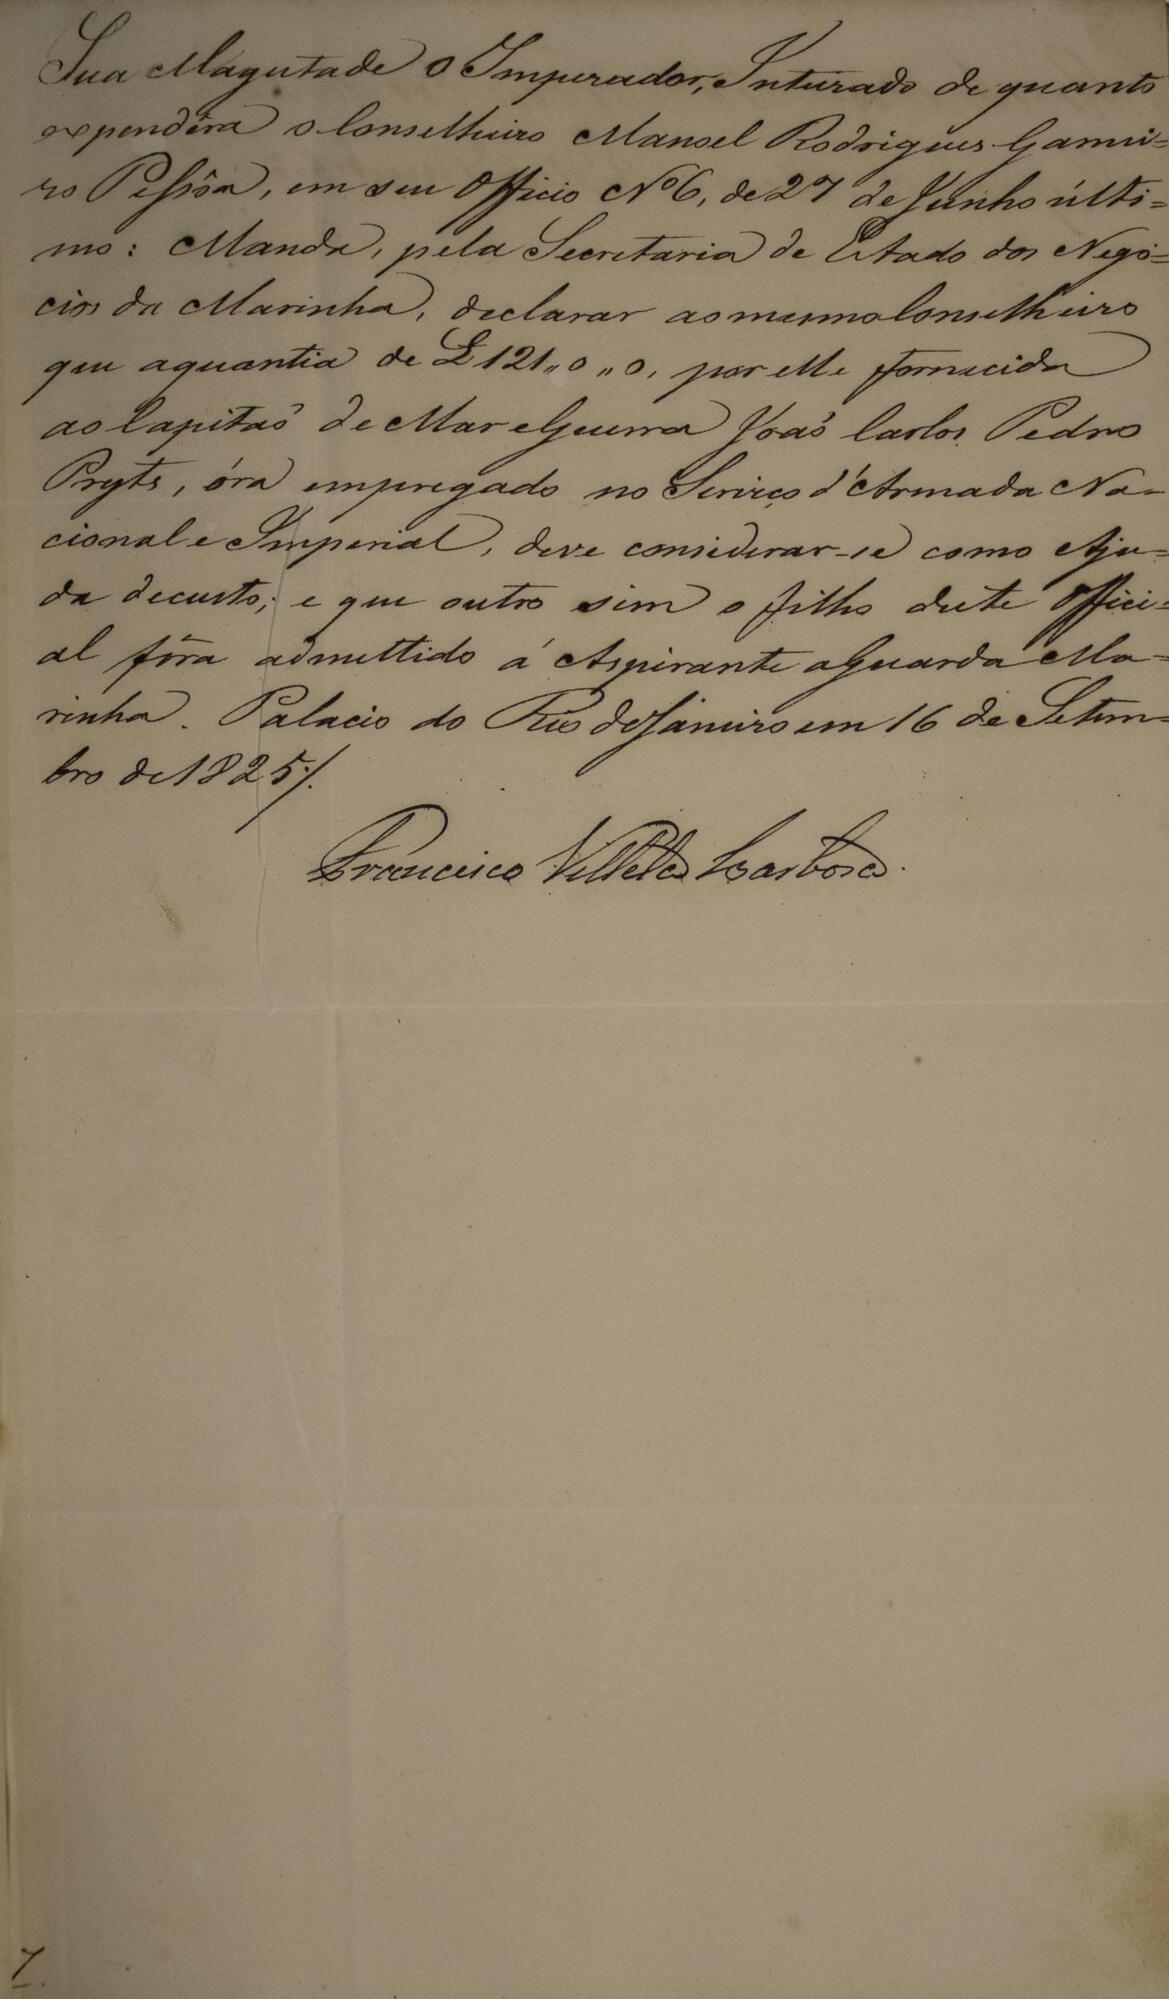 Sua Magestade O Imperador, Inteirado de quanto
expendêra o Conselheiro Manoel Rodrigues Gamei=
ro Pessôa, em seu Officio Nº 6, de 27 de Junho últi=
mo: Manda, pela Secretaria de Estado dos Negó=
cios da Marinha, declarar ao mesmo Conselheiro
que a quantia de £ 121,,0,,0, por elle fornecida
ao Capitaõ de Mar e Guerra Joaõ Carlos Pedro
Prytz, óra empregado no Serviço d'Armada Na=
cional e Imperial, deve considerar-se como Aju=
da de custo; e que outro sim o filho deste Offici=
al fôra admettido á Aspirante a Guarda Ma=
rinha. Palacio do Rio de Janeiro em 16 de Setem=
bro de 1825./.
Francisco Villela Barbosa.
7.